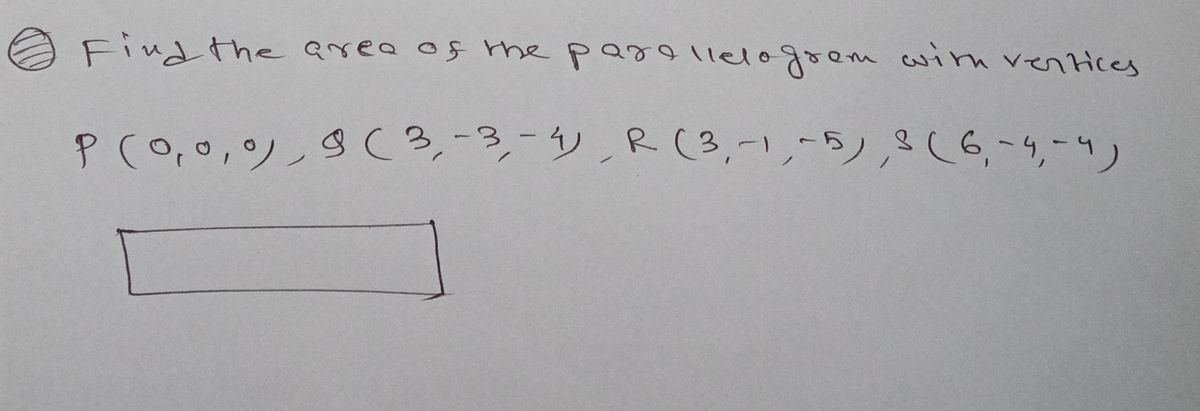 Find the area of the parallelogram with vertices
P (0,0,0), Q (3,-3,-4), R (3,-1,-5), S (6,-4,-4)